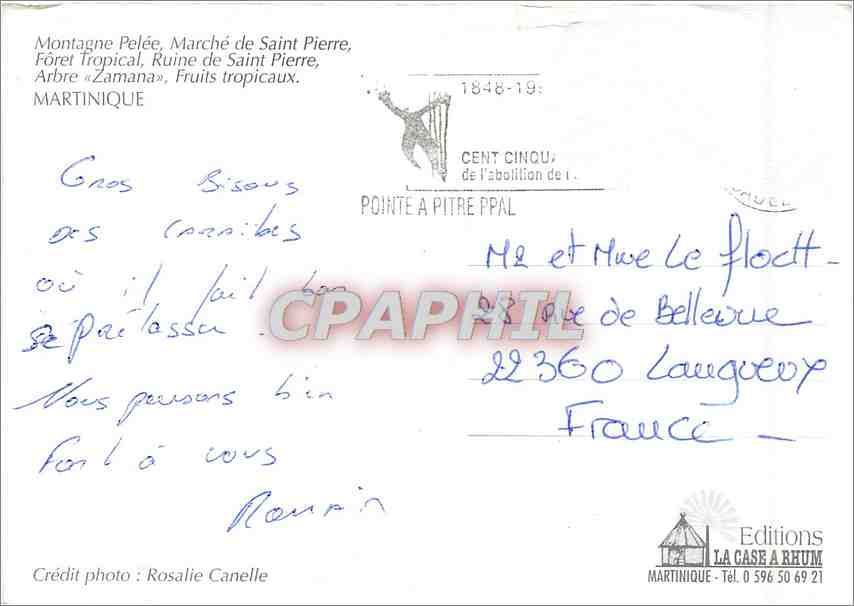 Montagne Pelée, Marché de Saint Pierre,
Fôret Tropical, Ruine de Saint Pierre,
Arbre «Zamana», Fruits tropicaux.
MARTINIQUE
1848-19
CENT CINQU
de l'abolition de l
POINTE A PITRE PPAL
Gros Bisous
des Carraibes
où il fait bon
se prélasser.
Nous pensons bien
fort à vous
Romain
CPAPHIL
Mr et Mme Le floch
28 Rue de Bellevue
22360 Langueux
France
Crédit photo : Rosalie Canelle
Editions
LA CASE A RHUM
MARTINIQUE - Tél. 0 596 50 69 21